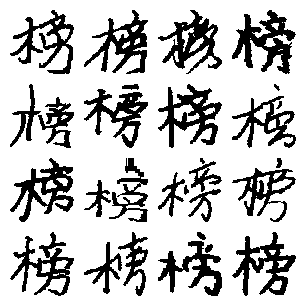 榜榜榜榜
榜榜榜榜
榜榜榜榜
榜榜榜榜